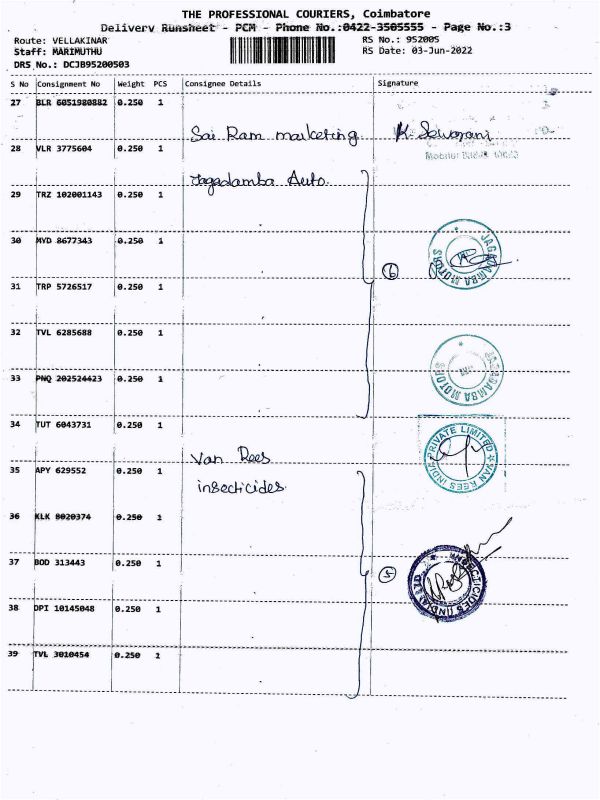 THE PROFESSIONAL COURIERS, Coimbatore
Delivery Runsheet - PCM - Phone No.:0422-3505555 - Page No.:3
Route: VELLAKINAR
RS No.: 952005
Staff: MARIMUTHU
RS Date: 03-Jun-2022
DRS No.: DCJB95200503
S No Consignment No Weight PCS Consignee Details Signature
27 BLR 6051980882 0.250 1
Sai Ram marketing K. Sewarani
28 VLR 3775604 0.250 1
Jagadamba Auto.
29 TRZ 102001143 0.250 1
30 MYD 8677343 0.250 1
JAGADAMBA MOTORS
6
31 TRP 5726517 0.250 1
32 TVL 6285688 0.250 1
JAGADAMBA MOTORS
33 PNQ 202524423 0.250 1
34 TUT 6043731 0.250 1
VAN REES INDIA PRIVATE LIMITED
Van Rees
35 APY 629552 0.250 1
insecticides
36 KLK 8020374 0.250 1
37 BOD 313443 0.250 1
5
INSECTICIDES (INDIA) LTD
38 DPI 10145048 0.250 1
39 TVL 3010454 0.250 1